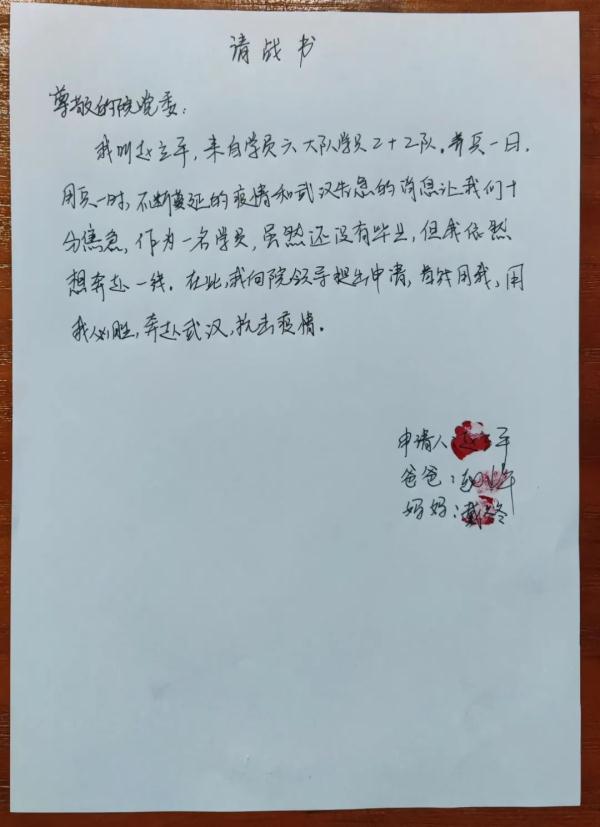 请战书
尊敬的院党委：
我叫赵立平，来自学员六大队学员2+2队。养兵一日，
用兵一时，不断蔓延的疫情和武汉告急的消息让我们十
分焦急，作为一名学员，虽然还没有毕业，但我依然
想奔赴一线。在此，我向院领导提出申请，若能用我，用
我必胜，奔赴武汉，抗击疫情。
申请人：平
爸爸：
妈妈：戴